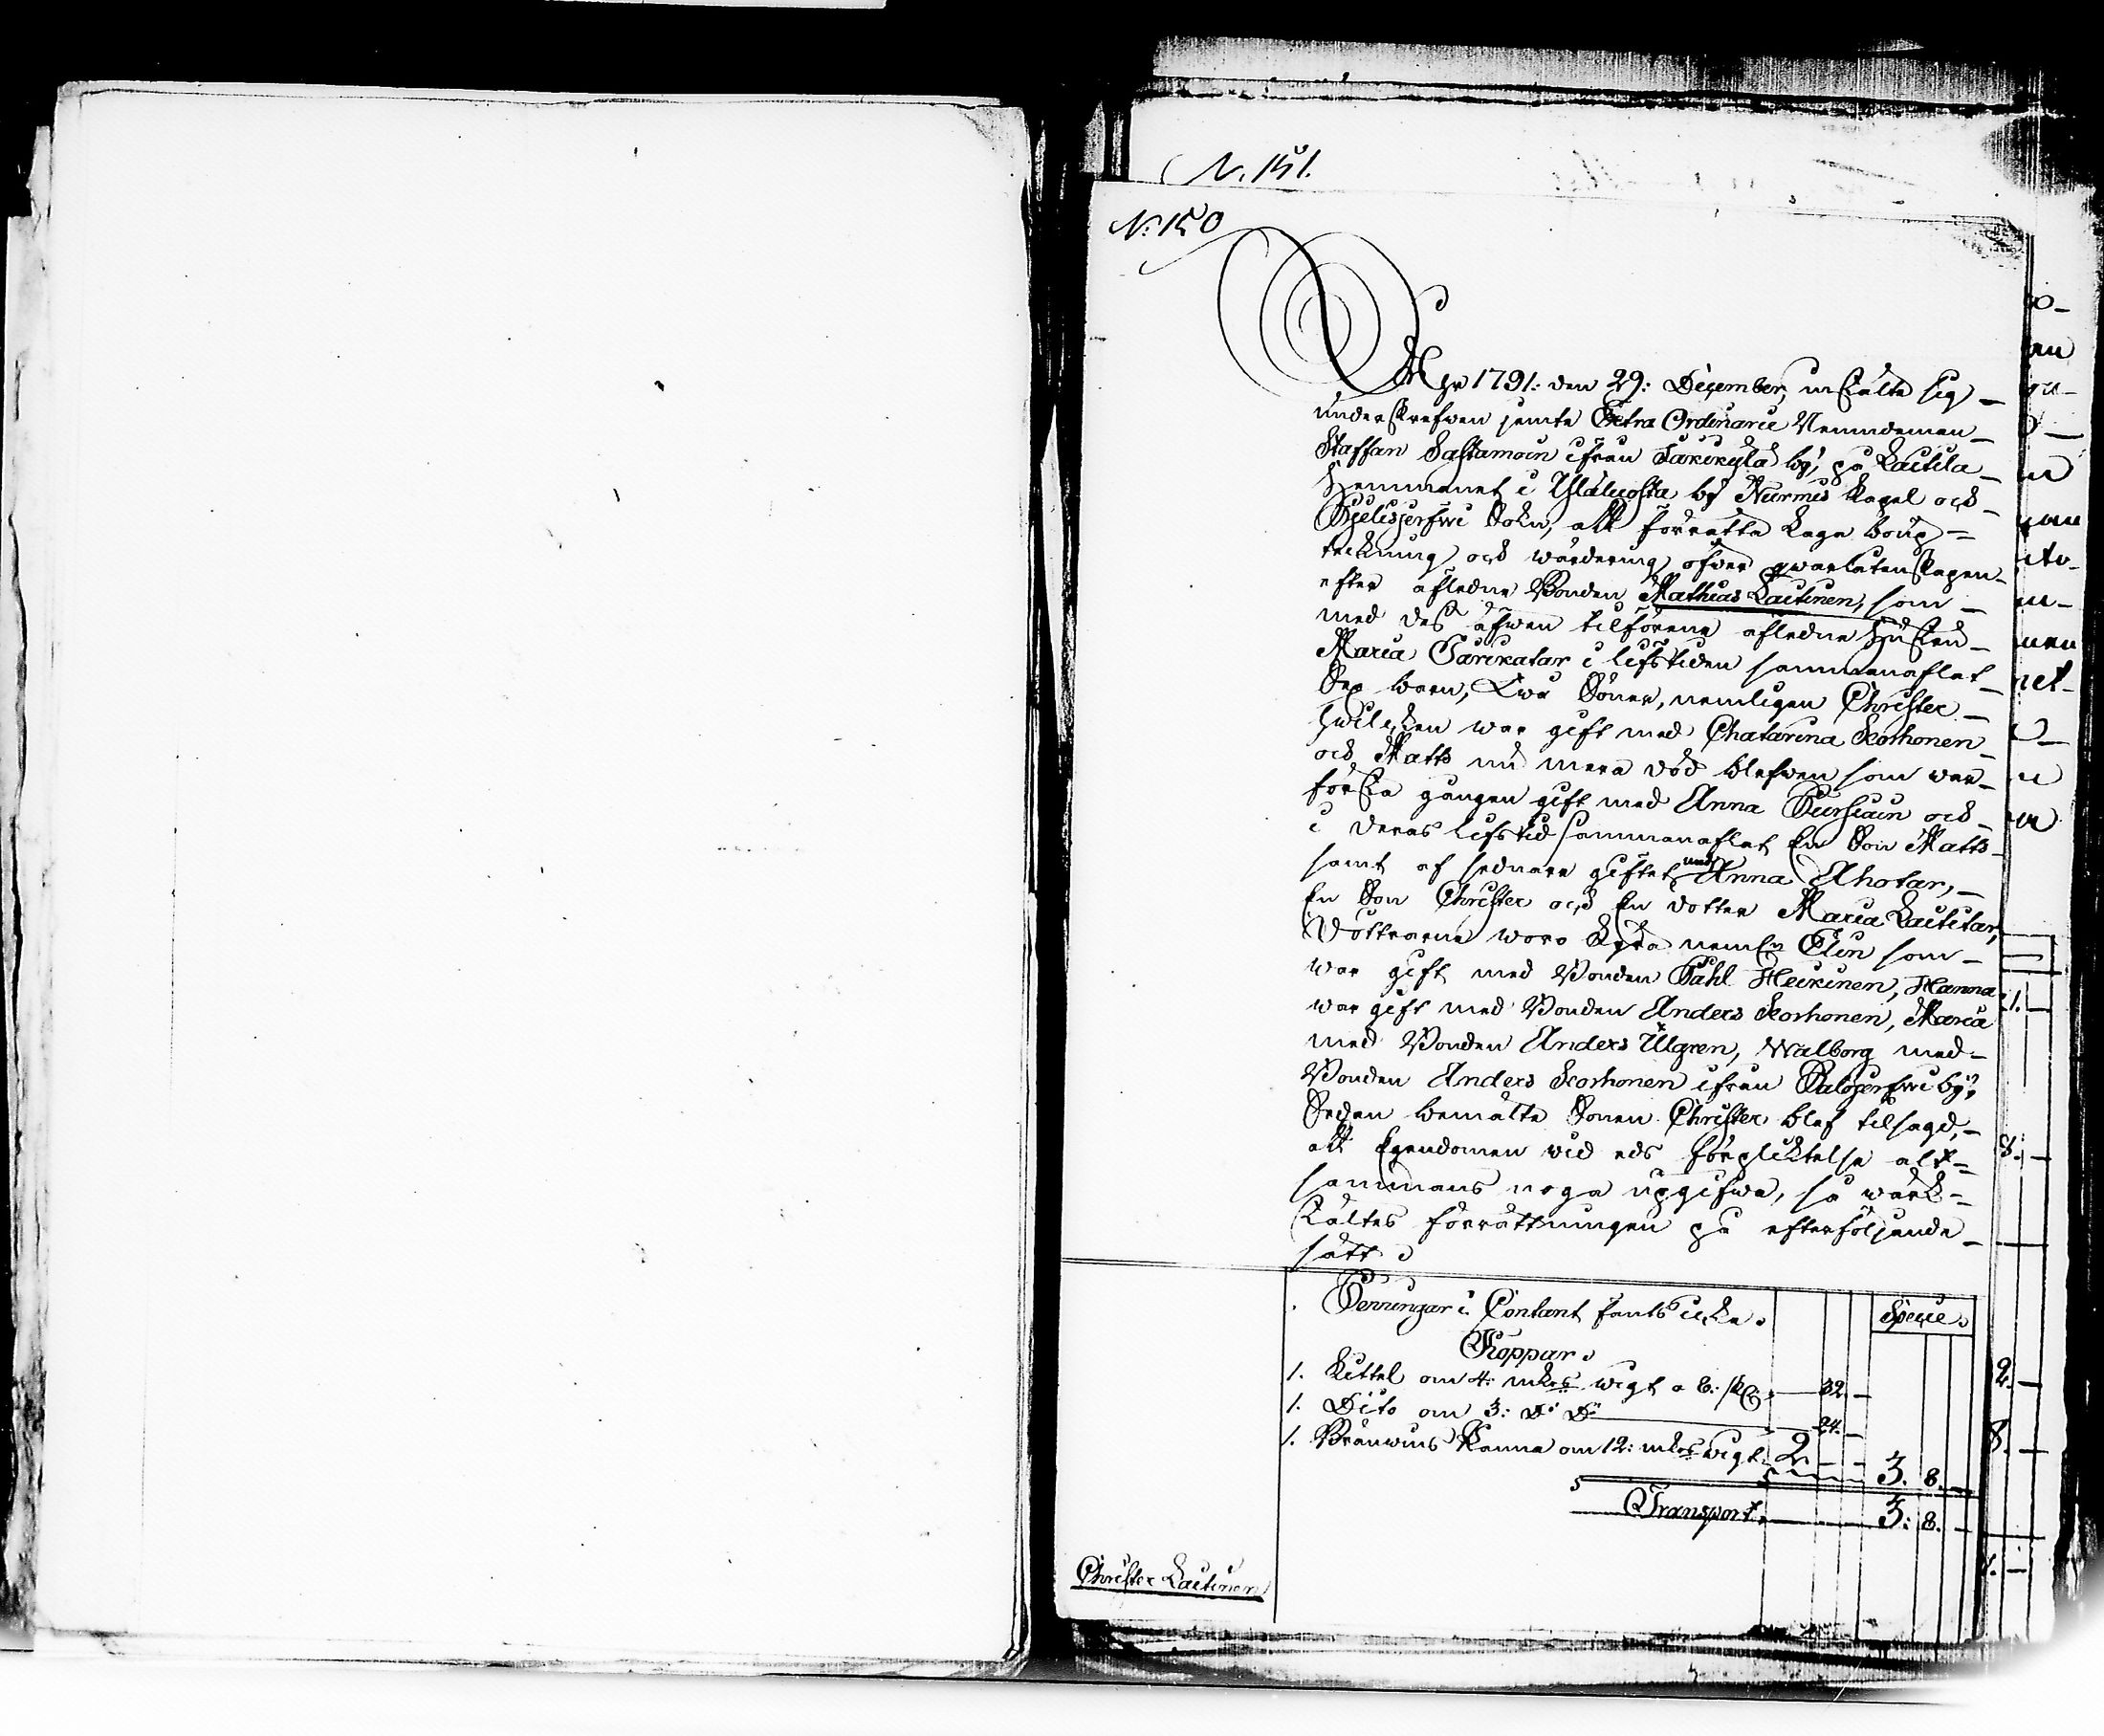 N. 151.
N. 150
Åhr 1791: den 29: December, instälte sig
underskrefwen jemte Extra Ordinarie Nemndeman
Staffan Sastamoin ifrån Sarickylä by, på Laitila
Hemmanet i Ylälucosta by Nurmis Kapel och
Pjelisjerfwi Sokn, att förrätta laga boup=
tekning och wärdering öfwer qwarlåtenskapen
efter afledne Bonden Mathias Laitinen, som
med des äfwen tilförene afledne Hustru
Maria Sarikatar i lifstiden sammanaflat
Sex barn, Twå Söner, nemligen Christer
hwilcken war gift med Chatarina Korhonen
och Matts nu mera död blefwen som war
första gången gift med Anna Pursiain och
i deras lifstid sammanaflat En Son Matts
samt af sednare giftet med Anna Ahotar,
En Son Christer och En dotter Maria Laititar,
Döttrarne woro Fyra neml:n Elin som
war gift med Bonden Påhl Heikinen, Hanna
war gift med Bonden Anders Korhonen, Maria
med Bonden Anders Ulgren, Walborg med
Bonden Anders Korhonen ifrån Salojerfwi by,
Sedan bemälte Sonen Christer blef tilsagd,
att Egendomen wid eds förplicktelse alt=
sammans noga upgifwa, så wärck=
stältes förrättningen på efterföljande
sätt
Penningar i Contant fants icke. Specie.
Koppar.
1. Kittel om 4: mkrs wigt a 8: sk. 32. —
1. Dito om 3: D:o D:o 24. —
1. Bränwins Panna om 12: mkrs wigt. 2. — — 3. 8. —
Transport. 3: 8. —
Christer Laitinen